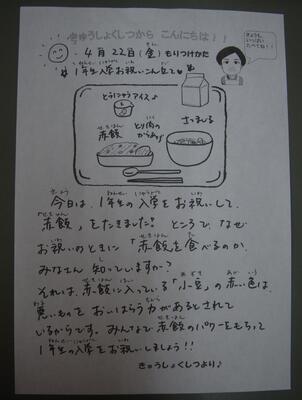 きゅうしょくしつから こんにちは！！
4月22日(金)もりつけかた
1年生入学お祝いこんだて
とうにゅうアイス♪
赤飯
とり肉のからあげ
さつまじる
今日は、1年生の入学をお祝いして、
「赤飯」をたきました。ところで、なぜ
お祝いのときに「赤飯を食べるのか、
みなさん知っていますか？
それは、赤飯に入っている「小豆」の赤い色は、
悪いものをおいはらう力があるとされて
いるからです。みんなで赤飯のパワーをもらって
1年生の入学をお祝いしましょう！！
きゅうしょくしつより♪